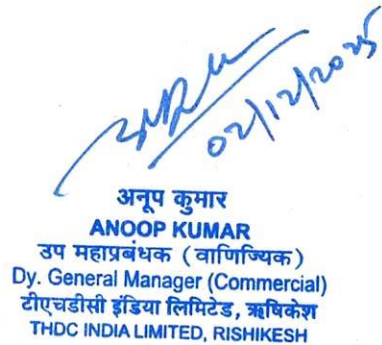 02/12/2025
अनूप कुमार
ANOOP KUMAR
उप महाप्रबंधक (वाणिज्यिक)
Dy. General Manager (Commercial)
टीएचडीसी इंडिया लिमिटेड, ऋषिकेश
THDC INDIA LIMITED, RISHIKESH